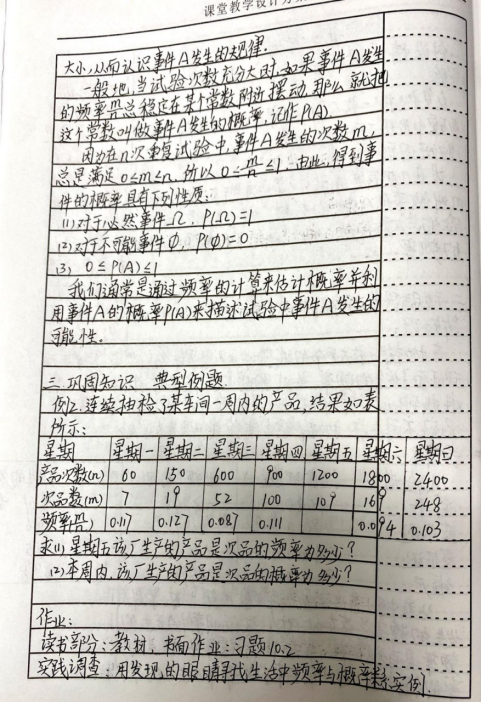 课堂教学设计方案
大小,从而认识事件A发生的规律.
一般地,当试验次数充分大时,如果事件A发生
的频率m/n总稳定在某个常数附近摆动,那么就把
这个常数叫做事件A发生的概率,记作P(A).
因为在n次重复试验中,事件A发生的次数m,
总是满足0≤m≤n,所以0≤m/n≤1.由此,得到事
件的概率具有下列性质:
(1)对于必然事件Ω,P(Ω)=1
(2)对于不可能事件Φ,P(Φ)=0
(3) 0≤P(A)≤1
我们通常是通过频率的计算来估计概率并利
用事件A的概率P(A)来描述试验中事件A发生的
可能性。
三.巩固知识 典型例题.
例2.连续抽检了某车间一周内的产品,结果如表
所示:
星期 星期一 星期二 星期三 星期四 星期五 星期六 星期日
产品次数(n) 60 150 600 900 1200 1800 2400
次品数(m) 7 19 52 100 109 169 248
频率(m/n) 0.117 0.127 0.087 0.111 0.094 0.103
求(1)星期五该厂生产的产品是次品的频率为多少?
(2)本周内,该厂生产的产品是次品的概率为多少?
作业:
读书部分:教材,书面作业:习题10.2
实践调查:用发现的眼睛寻找生活中频率与概率关系实例.